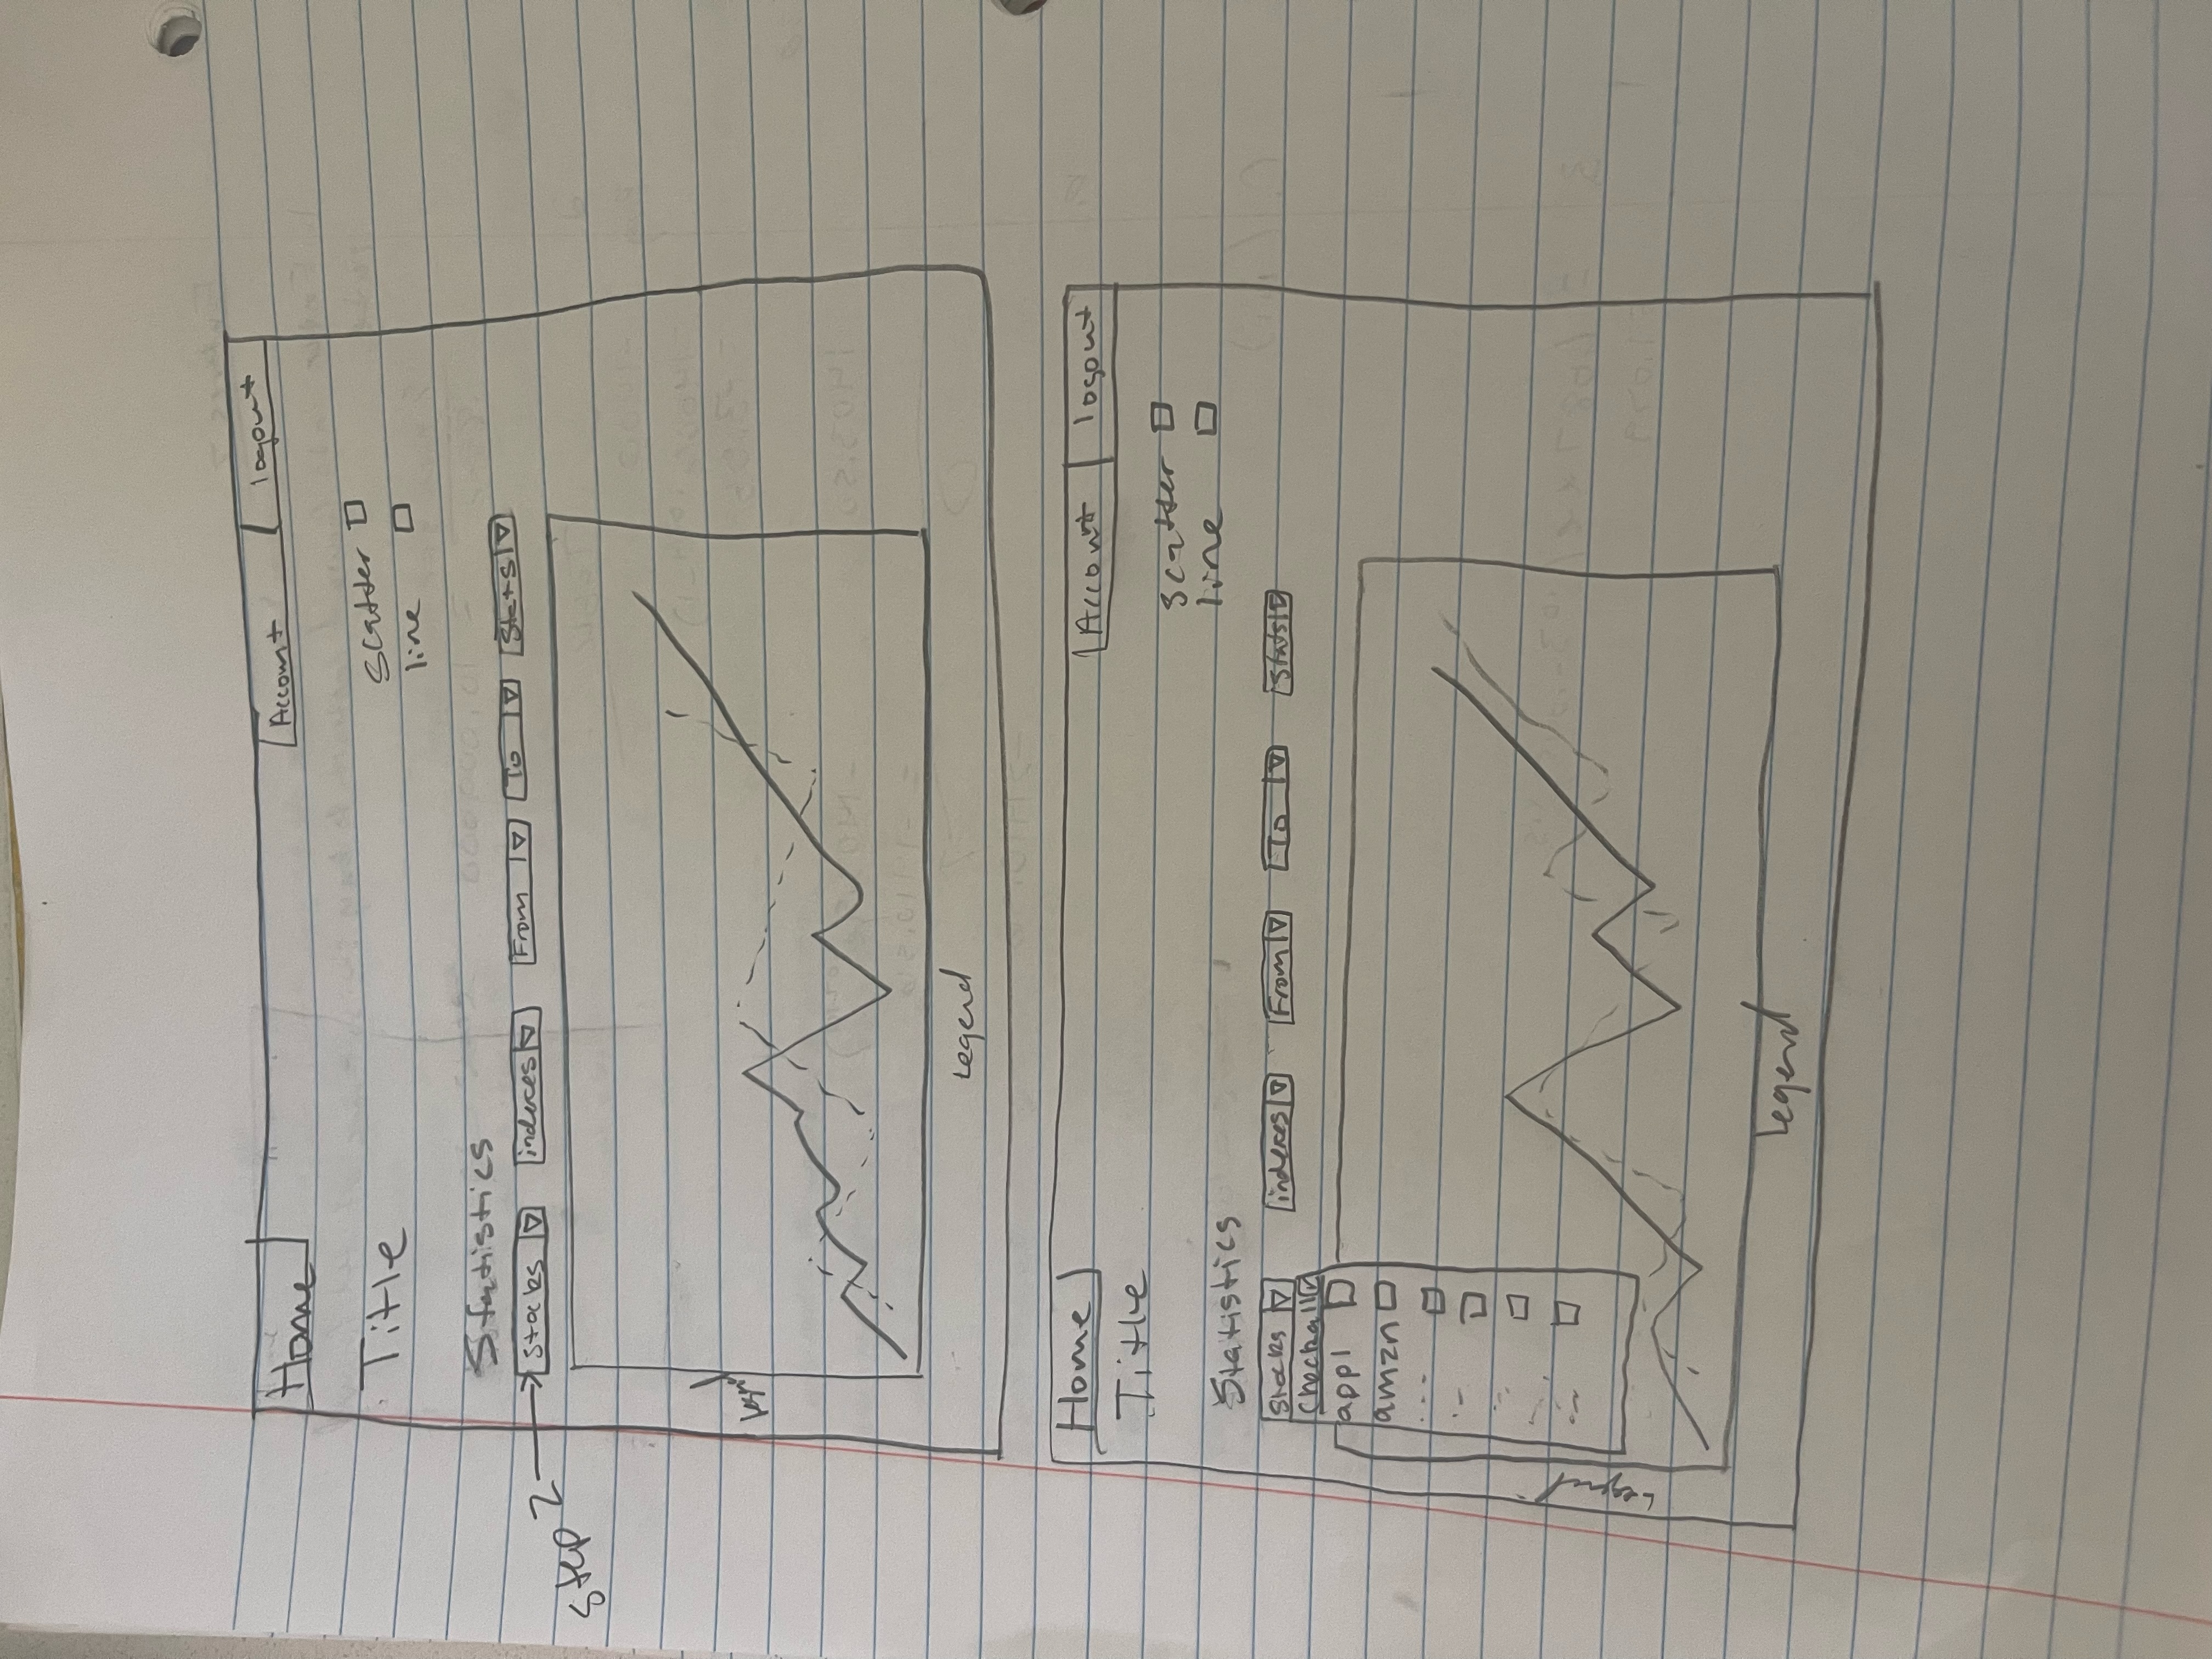 Home Account logout
Title
scatter
line
Statistics
Step 2
Stocks indexes From To Stats
Legend
Legend
Home Account logout
Title
scatter
line
Statistics
Stocks indexes From To Stats
Checkall
appl
amzn
Legend
Legend